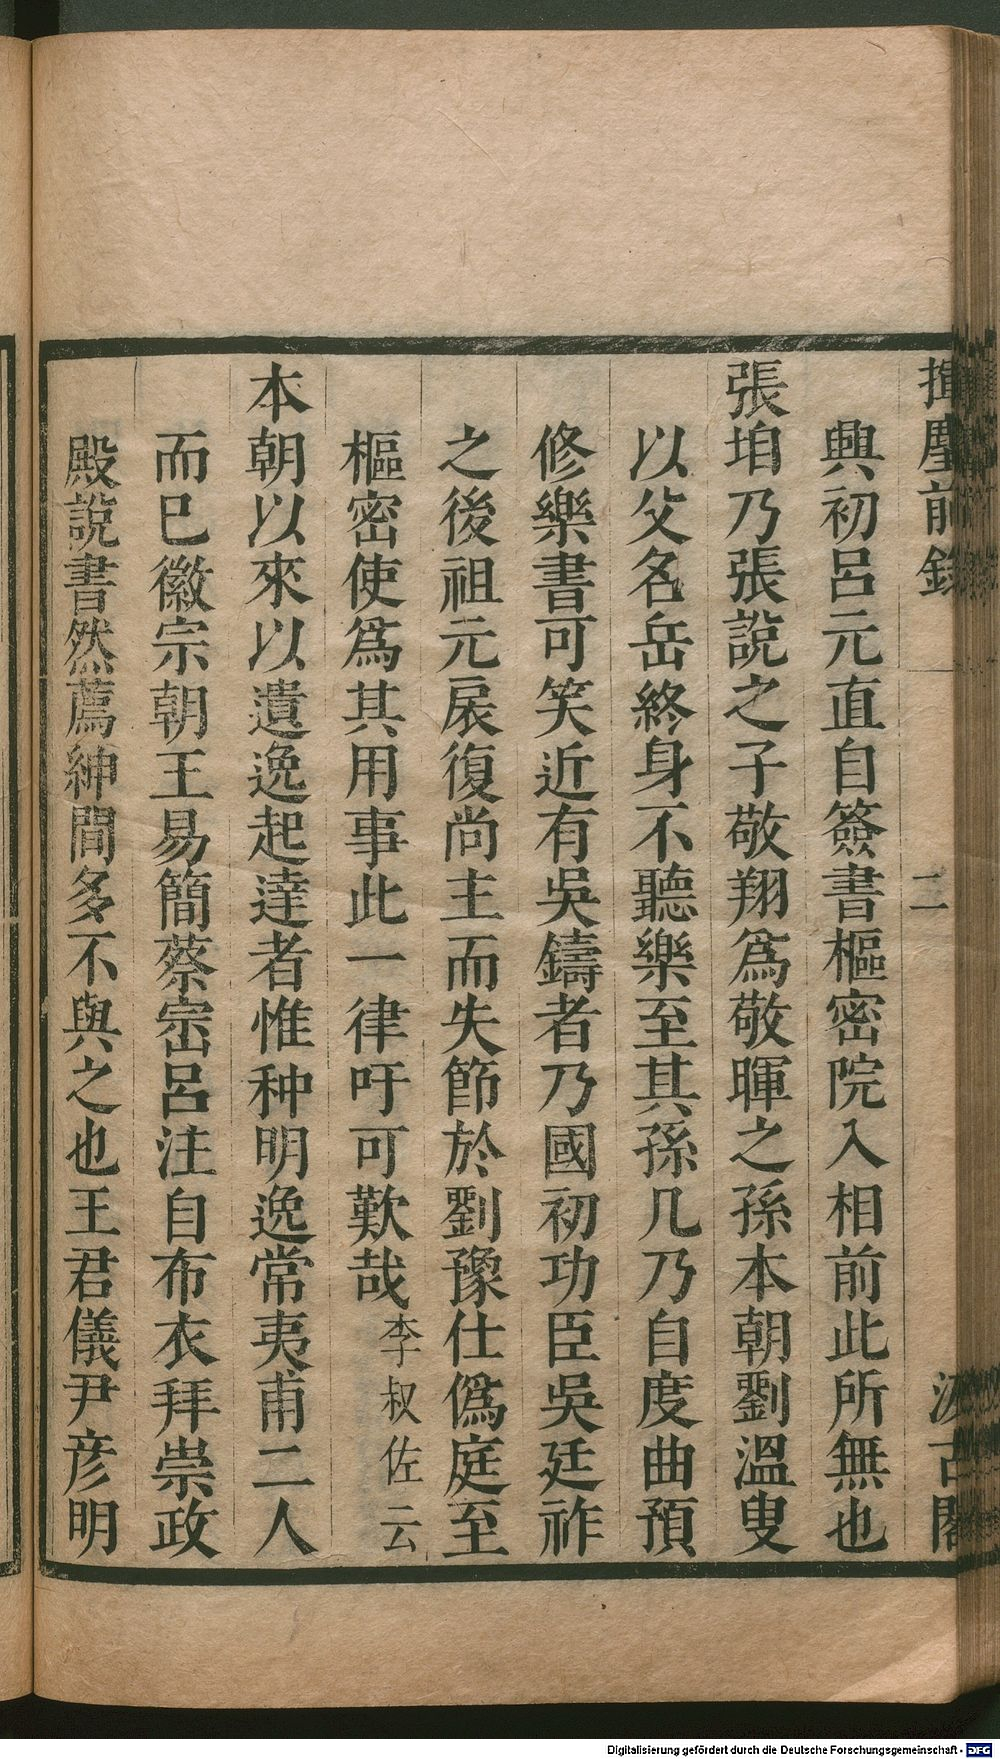 揮麈前錄
二
汲古閣
興初呂元直自簽書樞密院入相前此所無也
張垍乃張說之子敬翔爲敬暉之孫本朝劉溫叟
以父名岳終身不聽樂至其孫几乃自度曲預
修樂書可笑近有吳鑄者乃國初功臣吳廷祚
之後祖元扆復尚主而失節於劉豫仕僞庭至
樞密使爲其用事此一律吁可歎哉李叔佐云
本朝以來以遺逸起達者惟种明逸常夷甫二人
而巳徽宗朝王易簡蔡崈呂注自布衣拜崇政
殿說書然薦紳間多不與之也王君儀尹彦明
Digitalisierung gefördert durch die Deutsche Forschungsgemeinschaft - DFG